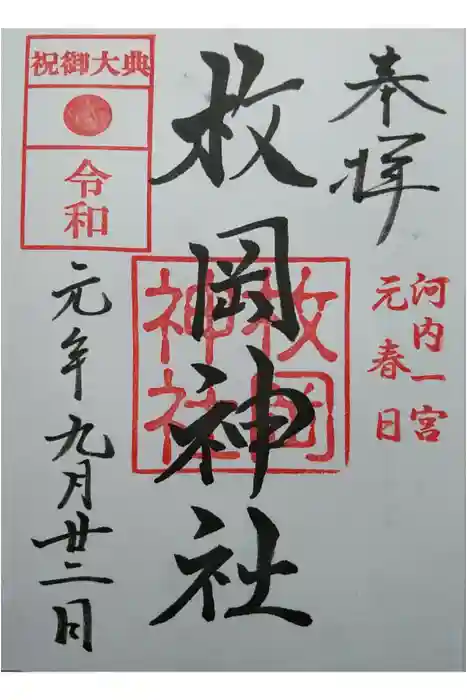 奉拝
河内一宮
元春日
枚岡神社
枚岡
神社
祝御大典
令和
元年九月廿二日